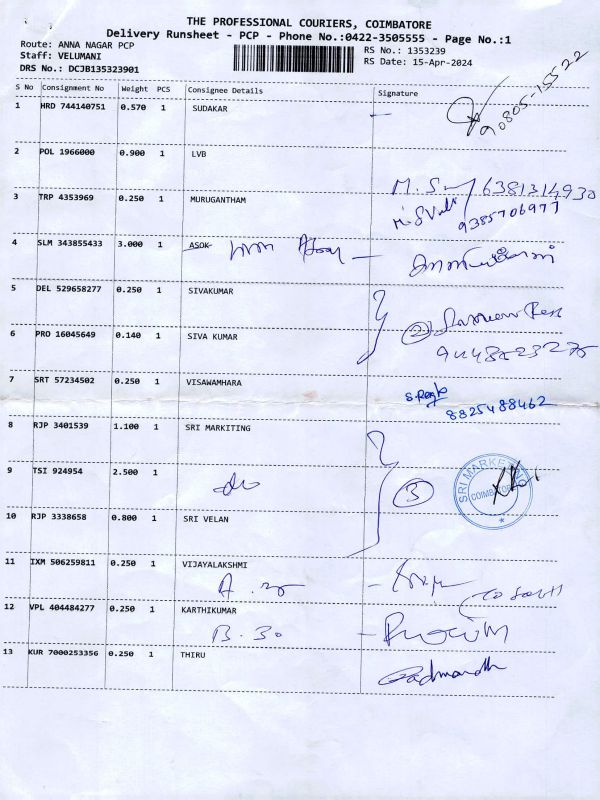 THE PROFESSIONAL COURIERS, COIMBATORE
Delivery Runsheet - PCP - Phone No.:0422-3505555 - Page No.:1
Route: ANNA NAGAR PCP
Staff: VELUMANI
DRS No.: DCJB135323901
RS No.: 1353239
RS Date: 15-Apr-2024
S No Consignment No Weight PCS Consignee Details Signature
1 HRD 744140751 0.570 1 SUDAKAR 90805-15522
2 POL 1966000 0.900 1 LVB
M. 6381314930
3 TRP 4353969 0.250 1 MURUGANTHAM
9385706977
4 SLM 343855433 3.000 1 ASOK
5 DEL 529658277 0.250 1 SIVAKUMAR
6 PRO 16045649 0.140 1 SIVA KUMAR 2
7 SRT 57234502 0.250 1 VISAWAMHARA
8825488462
8 RJP 3401539 1.100 1 SRI MARKITING
9 TSI 924954 2.500 1 3 SRI MARKETING
COIMBATORE
10 RJP 3338658 0.800 1 SRI VELAN
11 IXM 506259811 0.250 1 VIJAYALAKSHMI
12 VPL 404484277 0.250 1 KARTHIKUMAR
B. 30
13 KUR 7000253356 0.250 1 THIRU